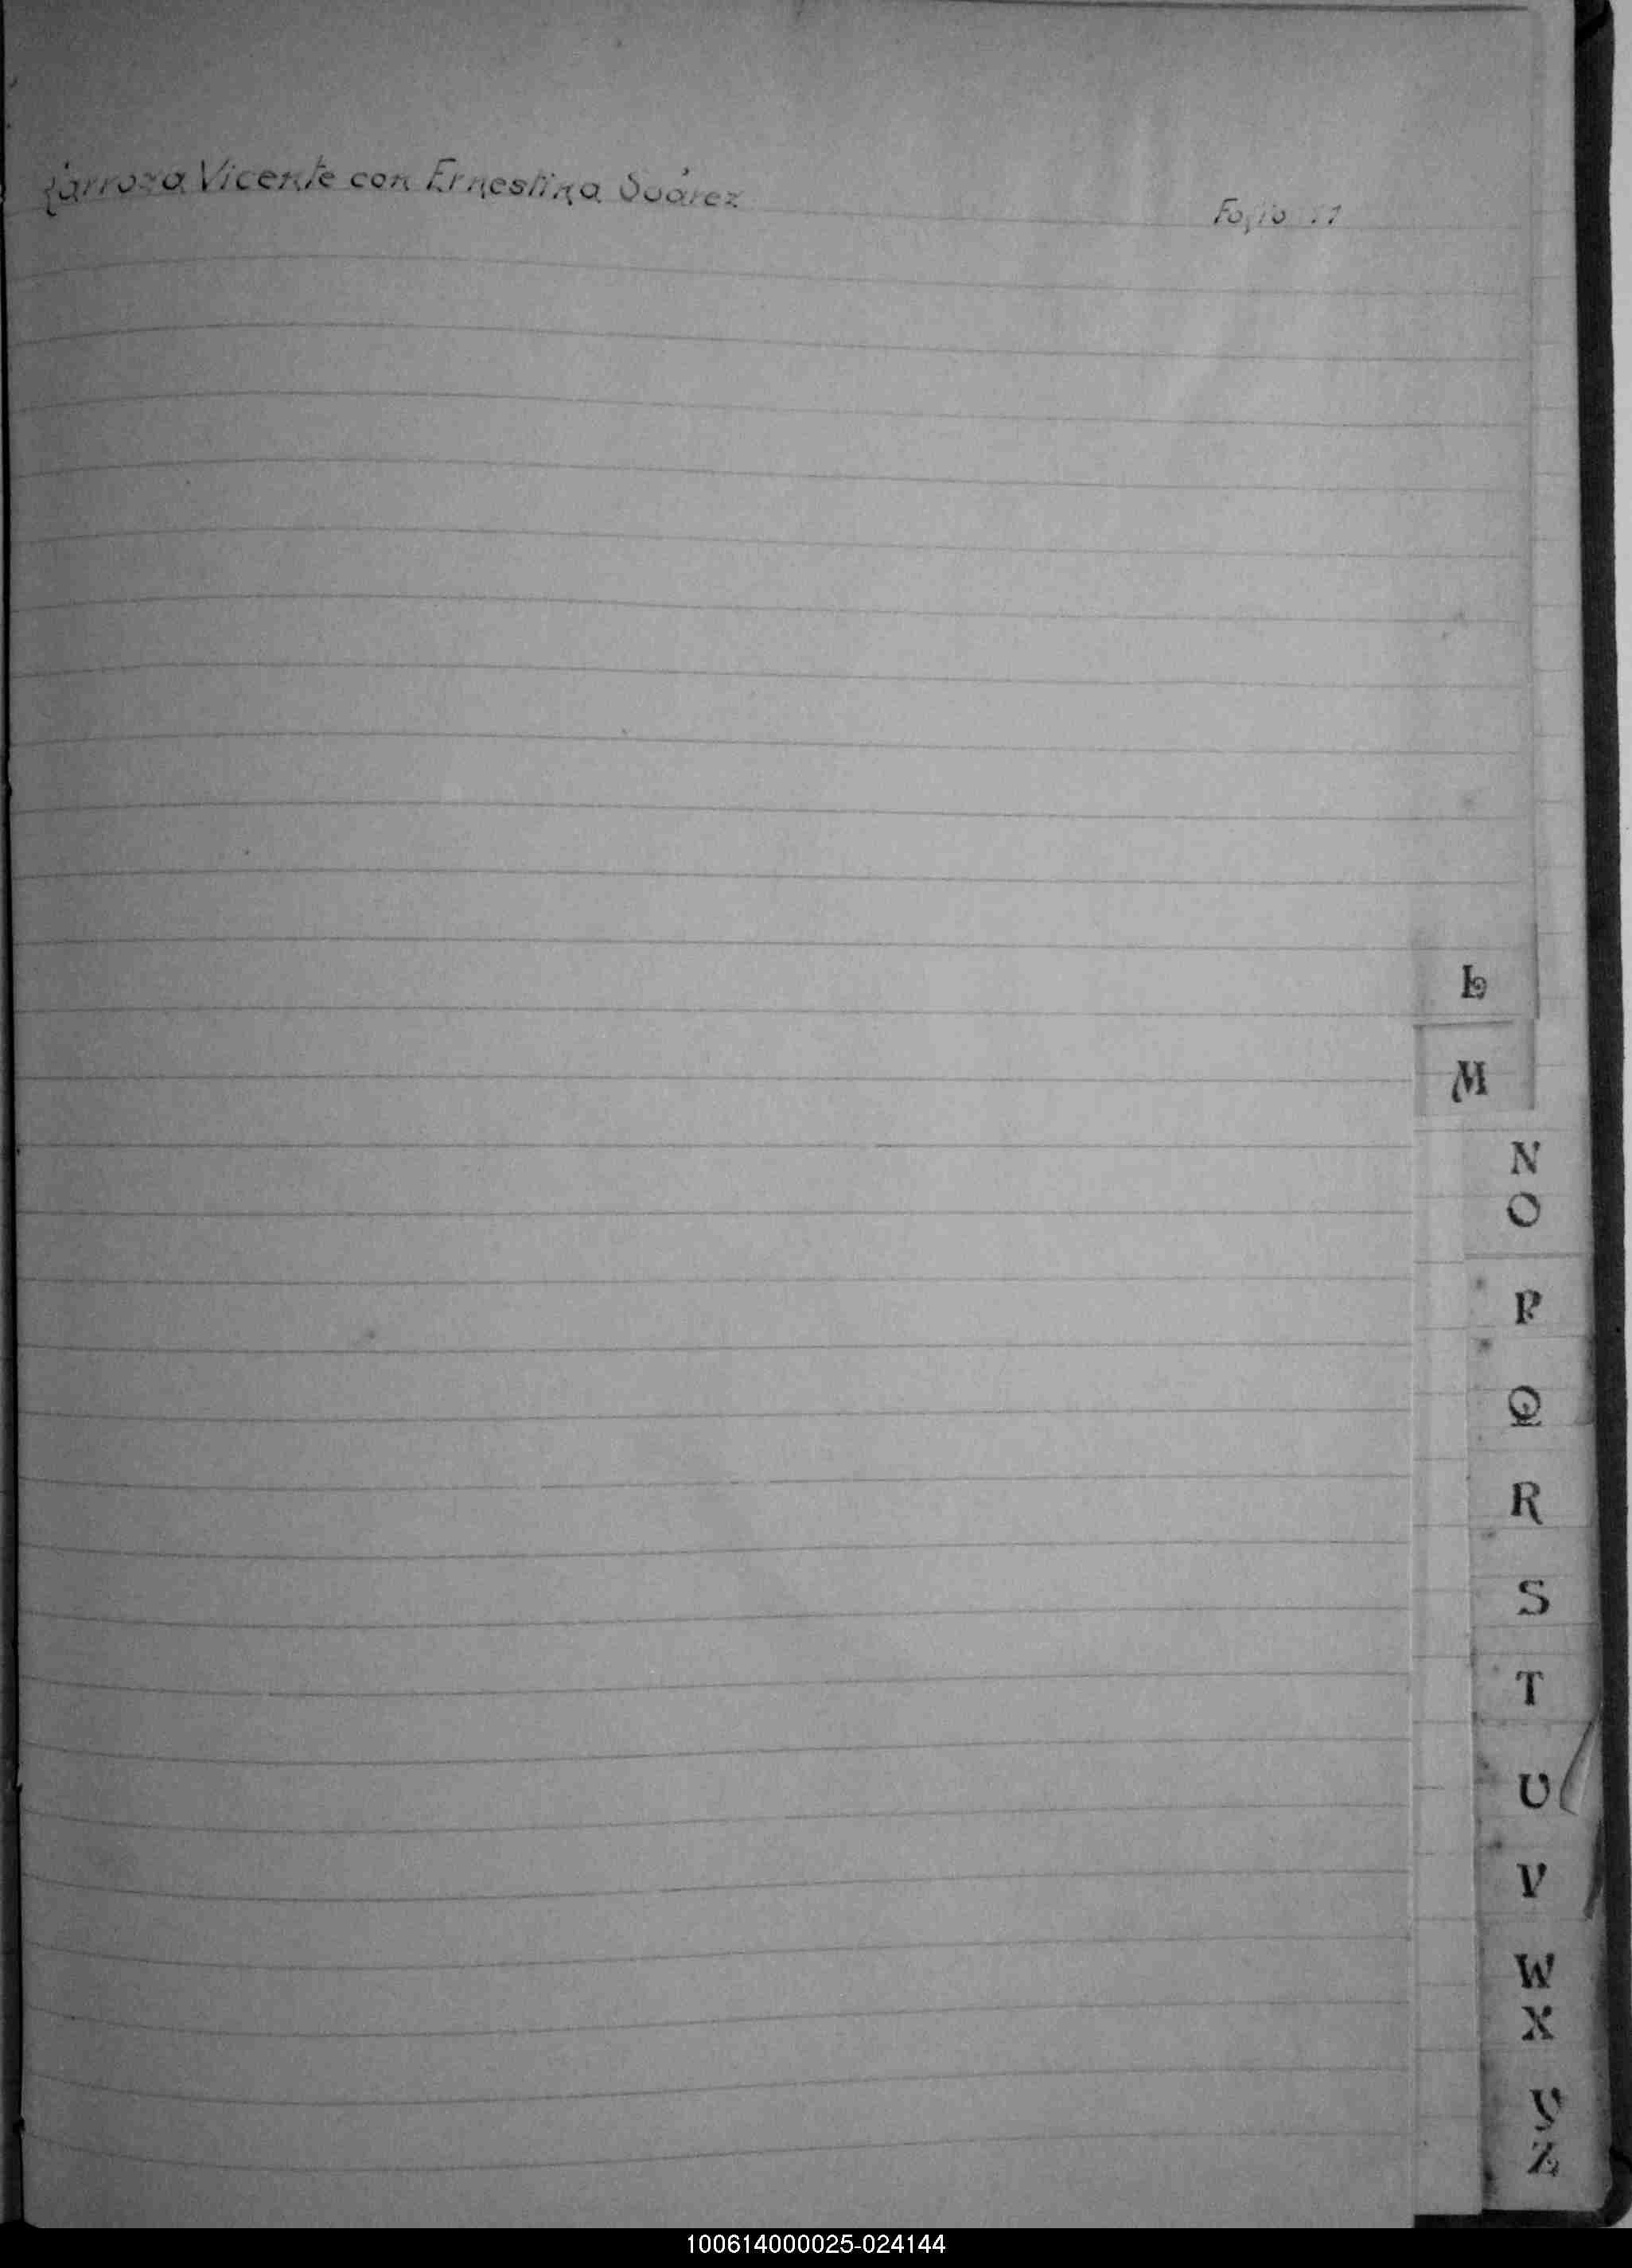 Larroza Vicente con Ernestina Suárez Folio
L
M
N
O
P
Q
R
S
T
U
V
W
X
Y
Z
100614000025-024144